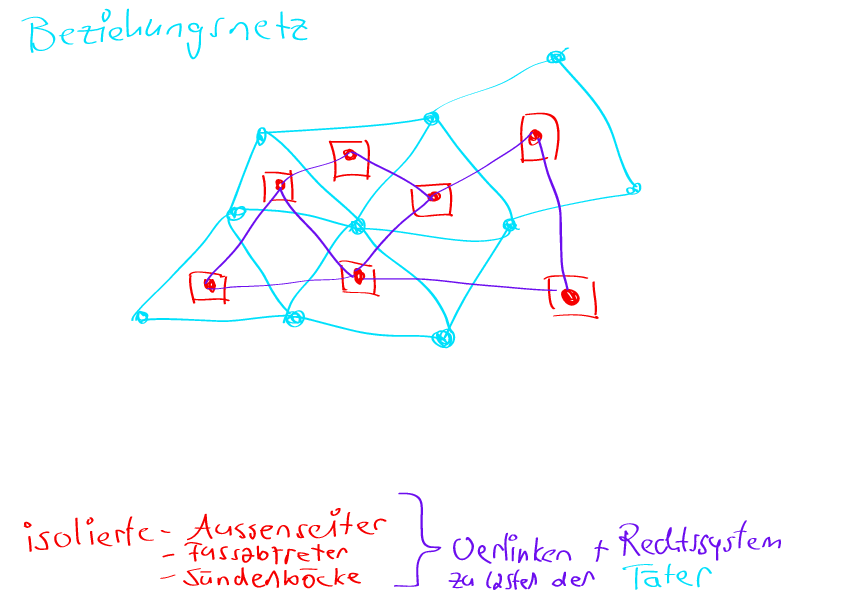 Beziehungsnetz
isolierte - Aussenseiter
- Fussabtreter
- Sündenböcke
Verlinken + Rechtssystem
zu lasten der Täter